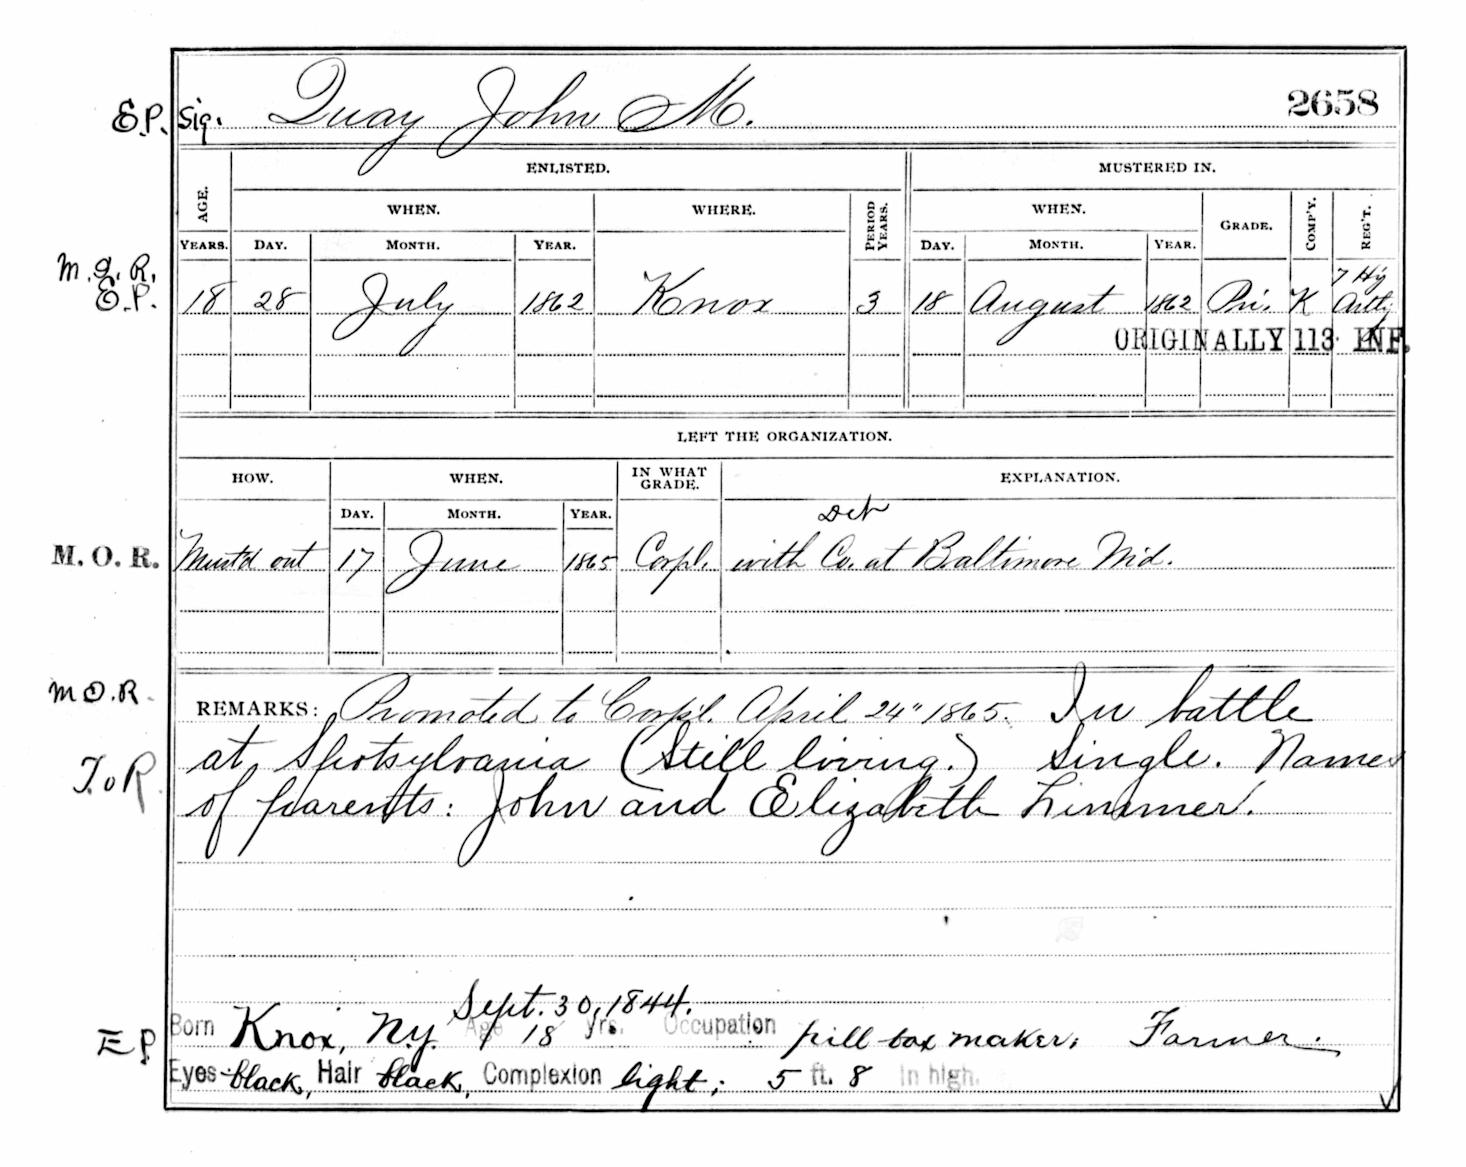 E.P. Sig. Quay John M. 2658
ENLISTED. MUSTERED IN.
AGE. WHEN. WHERE. PERIOD YEARS. WHEN. GRADE. COMP'Y. REG'T.
YEARS. DAY. MONTH. YEAR. DAY. MONTH. YEAR.
M.G.R. 7 Hy
E.P. 18 28 July 1862 Knox 3 18 August 1862 Pri. K Arty
ORIGINALLY 113 INF.
LEFT THE ORGANIZATION.
HOW. WHEN. IN WHAT GRADE. EXPLANATION.
DAY. MONTH. YEAR. Det
M. O. R. Must'd out 17 June 1865 Corpl. with Co. at Baltimore Md.
M.O.R. REMARKS: Promoted to Corpl. April 24" 1865. In battle
T.o R. at Spotsylvania (Still living.) Single. Names
of parents: John and Elizabeth Zimmer.
Sept. 30, 1844.
E P Born Knox, N.Y. Age 18 yrs. Occupation pill-box maker; Farmer.
Eyes black, Hair black, Complexion light; 5 ft. 8 in high.